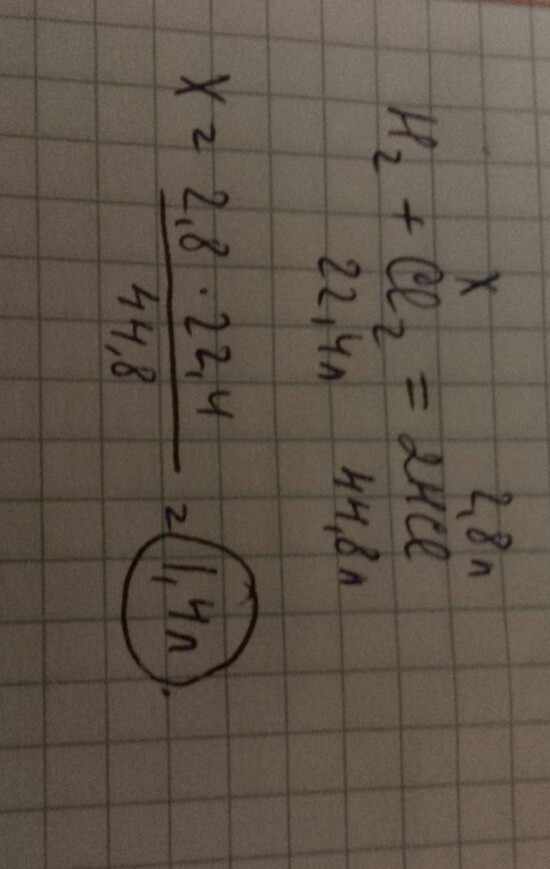 x 2,8л
H2 + Cl2 = 2HCl
22,4л 44,8л
x = 2,8 · 22,4
44,8
= 1,4л.